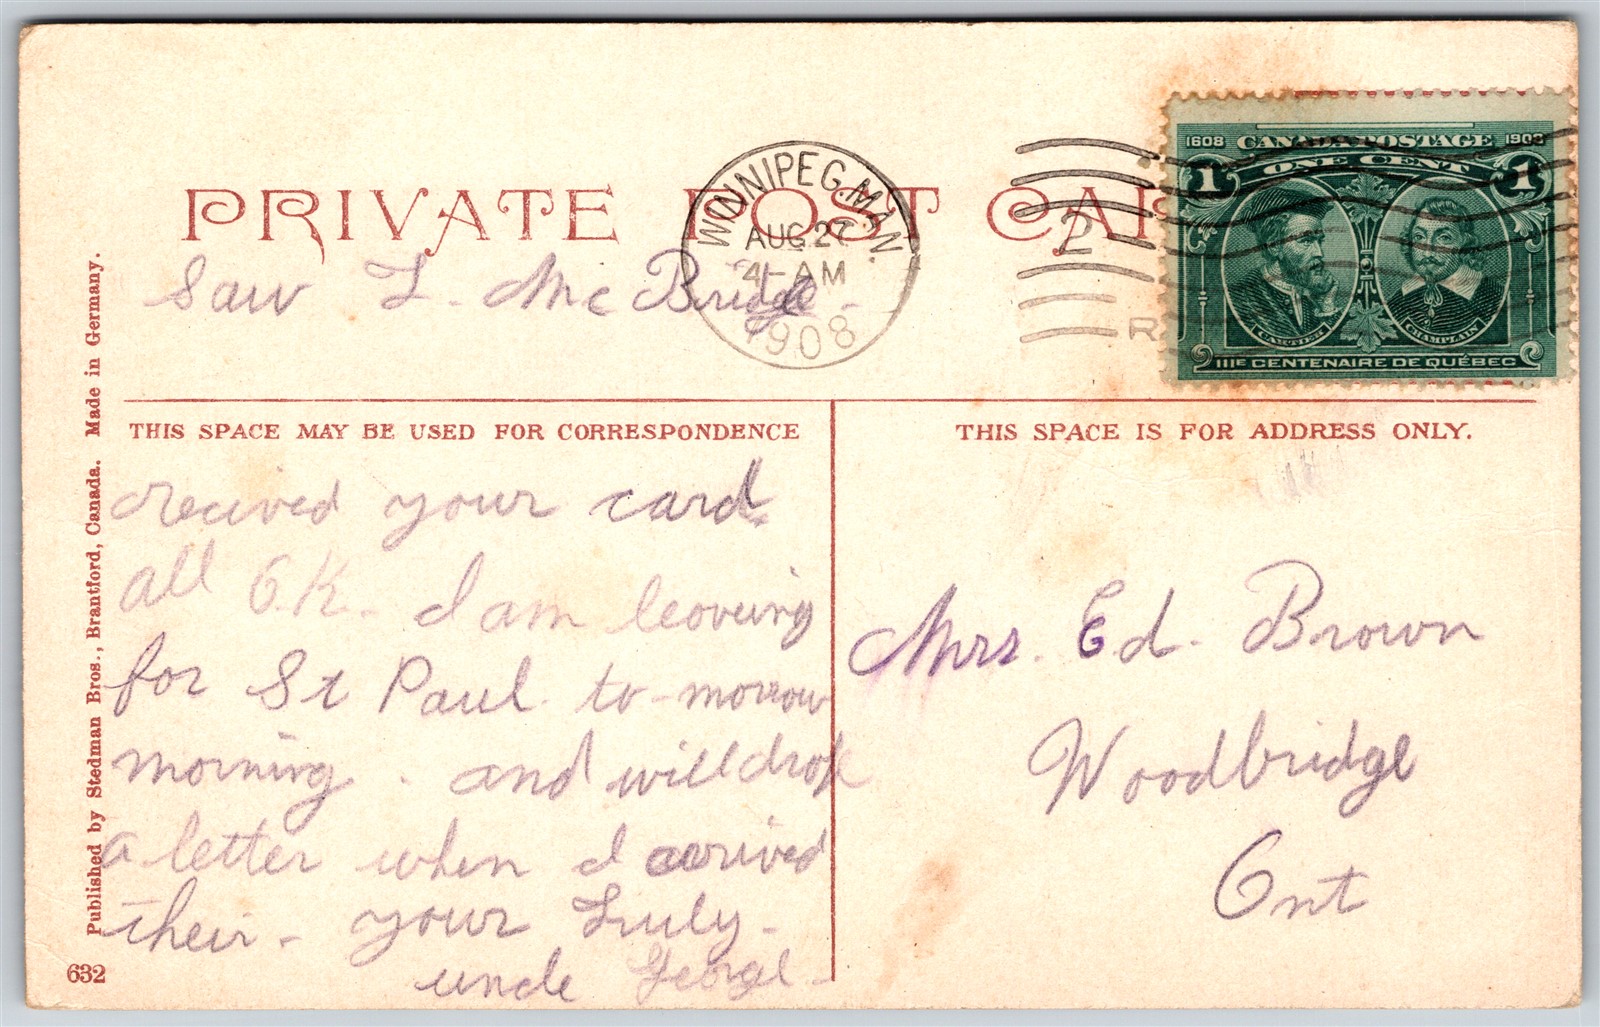 PRIVATE POST CAR
WINNIPEG.MAN.
AUG.27
4-AM
1908
2
R
1608 CANADA POSTAGE 1908
1 ONE CENT 1
CARTIER CHAMPLAIN
IIIE CENTENAIRE DE QUÉBEC
Saw L. McBride -
THIS SPACE MAY BE USED FOR CORRESPONDENCE
recived your card
all O.K. I am leoveing
for St Paul to-morrow
morning. and will drop
a letter when I arrived
their - your Truly -
uncle George -
THIS SPACE IS FOR ADDRESS ONLY.
Mrs. Ed. Brown
Woodbridge
Ont
Published by Stedman Bros., Brantford, Canada. Made in Germany.
632